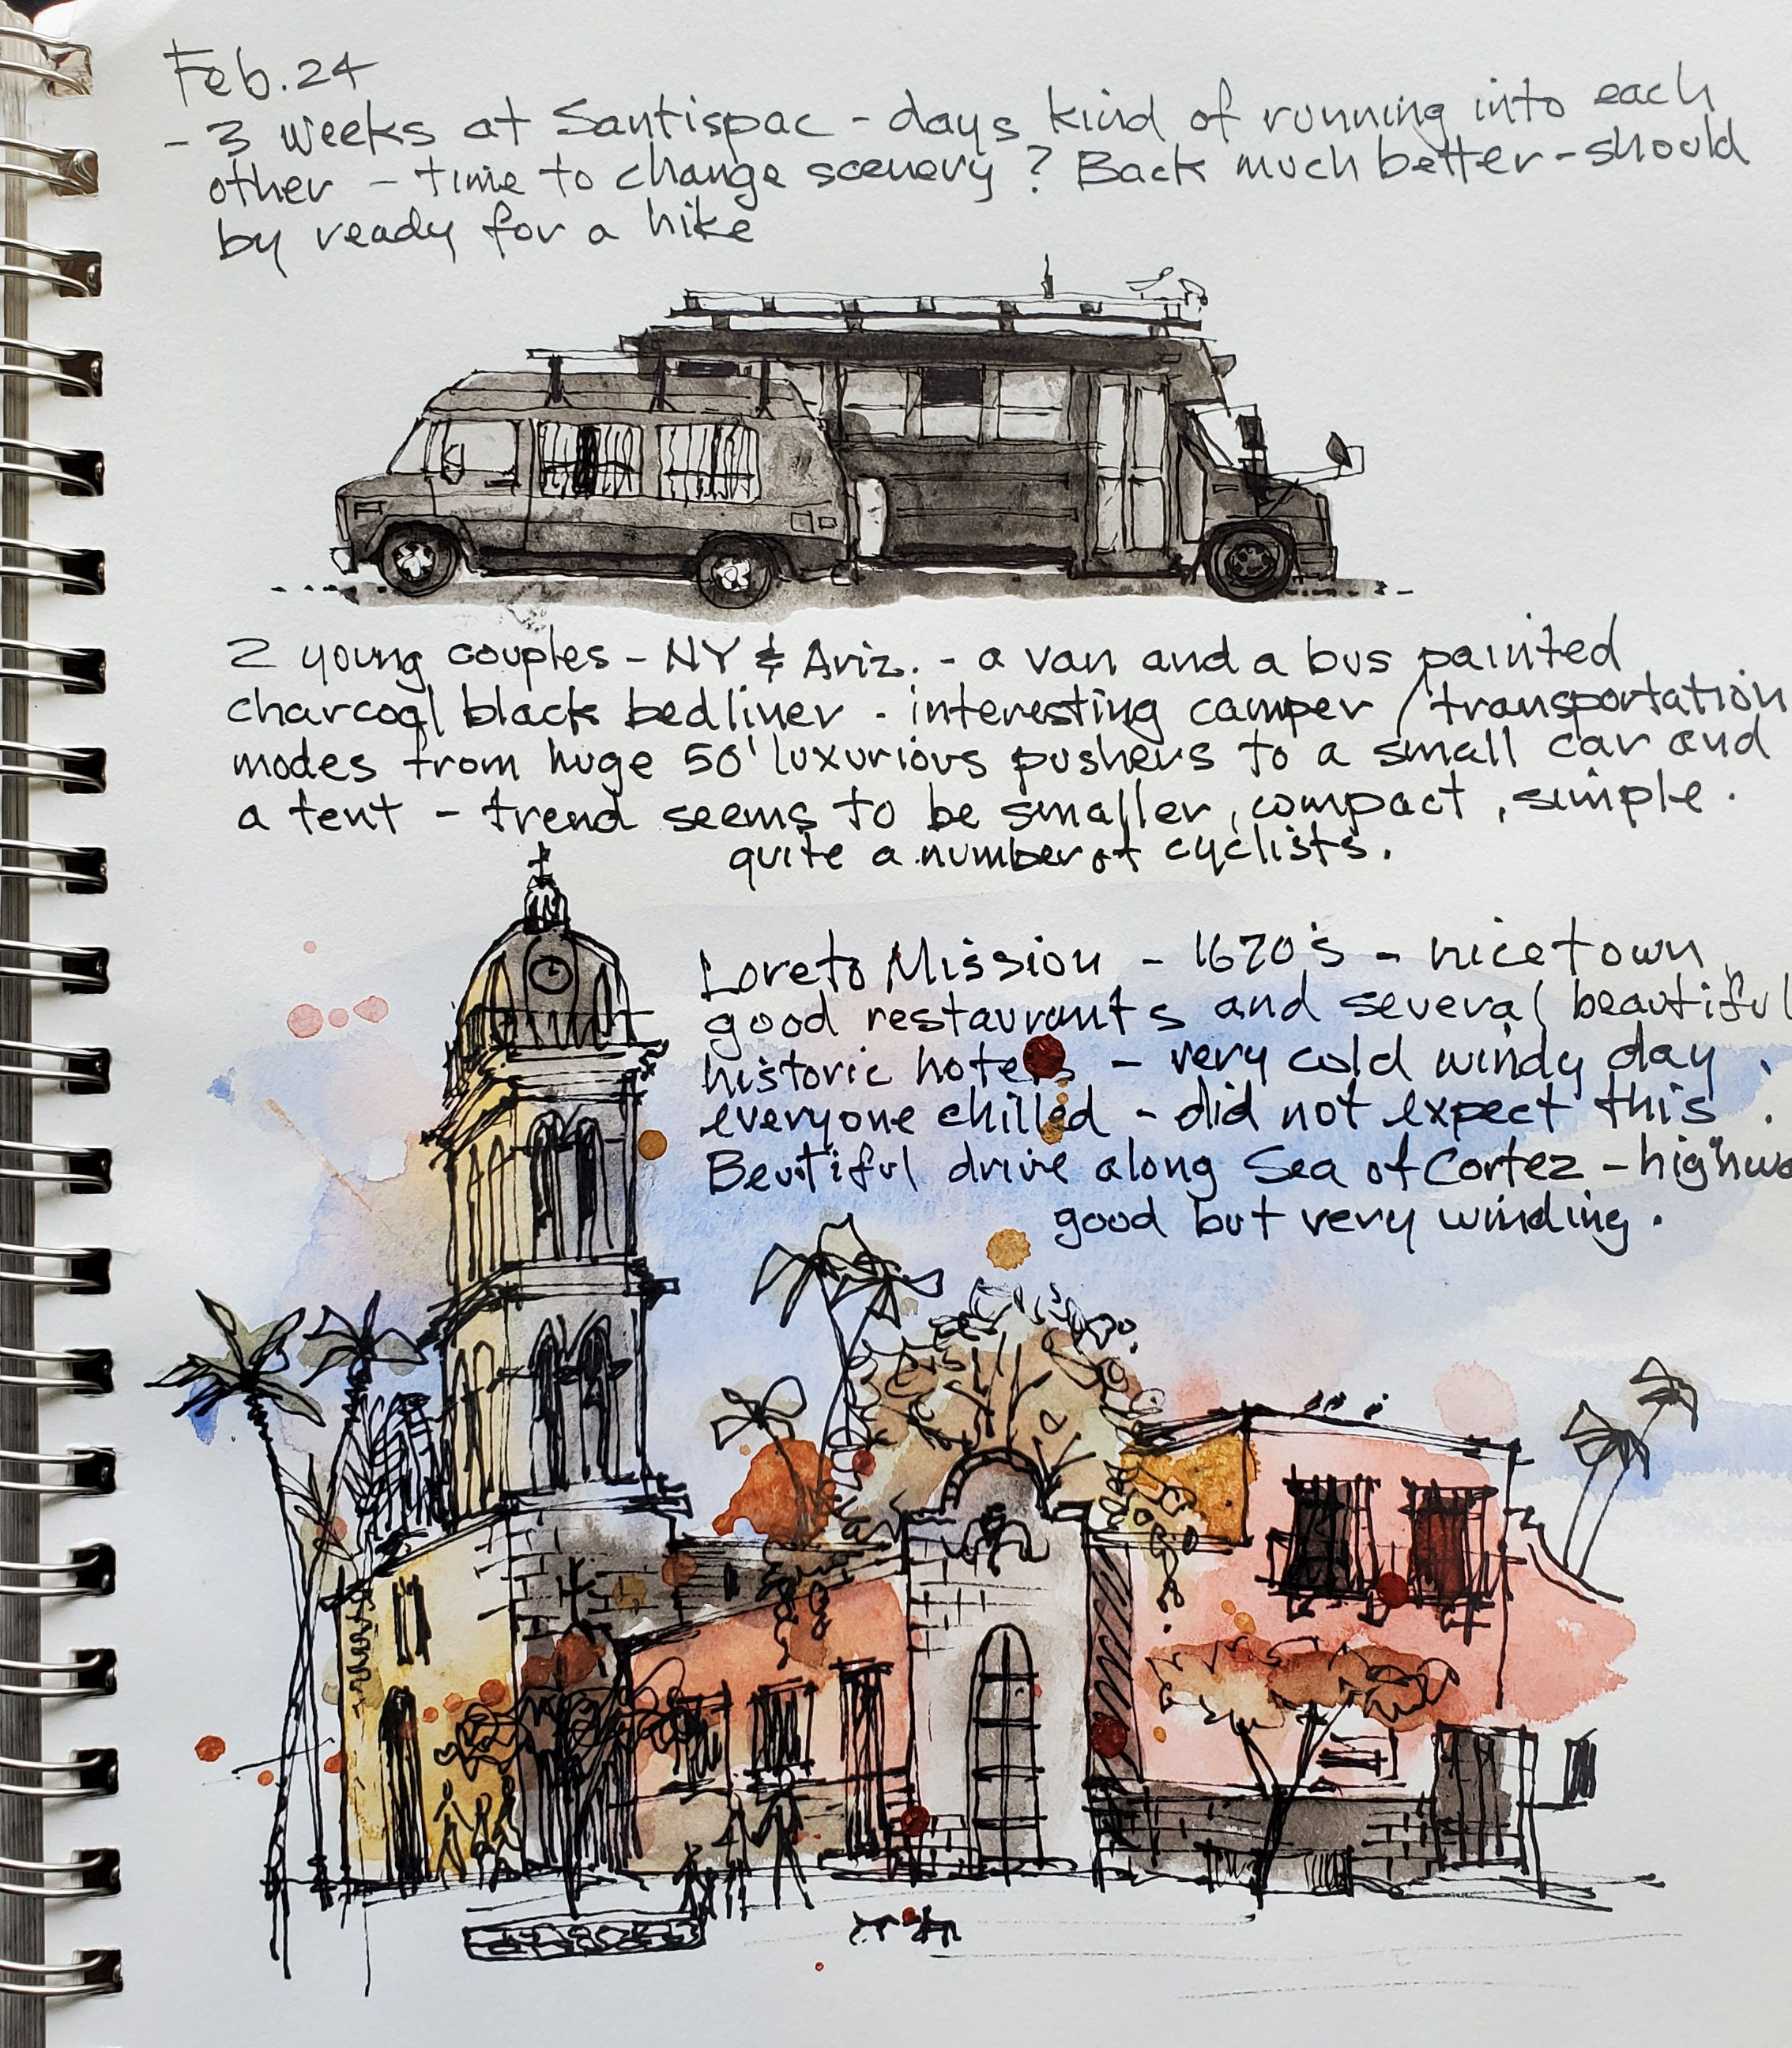 Feb.24
- 3 weeks at Santispac - days kind of running into each
other - time to change scenery? Back much better - should
by ready for a hike
2 young couples - NY & Ariz. - a van and a bus painted
charcoal black bedliner. interesting camper / transportation
modes from huge 50' luxurious pushers to a small car and
a tent - trend seems to be smaller, compact, simple.
quite a number of cyclists.
Loreto Mission - 1670's - nice town,
good restaurants and several beautiful
historic hotels - very cold windy day,
everyone chilled - did not expect this.
Beutiful drive along Sea of Cortez - highwa
good but very winding.